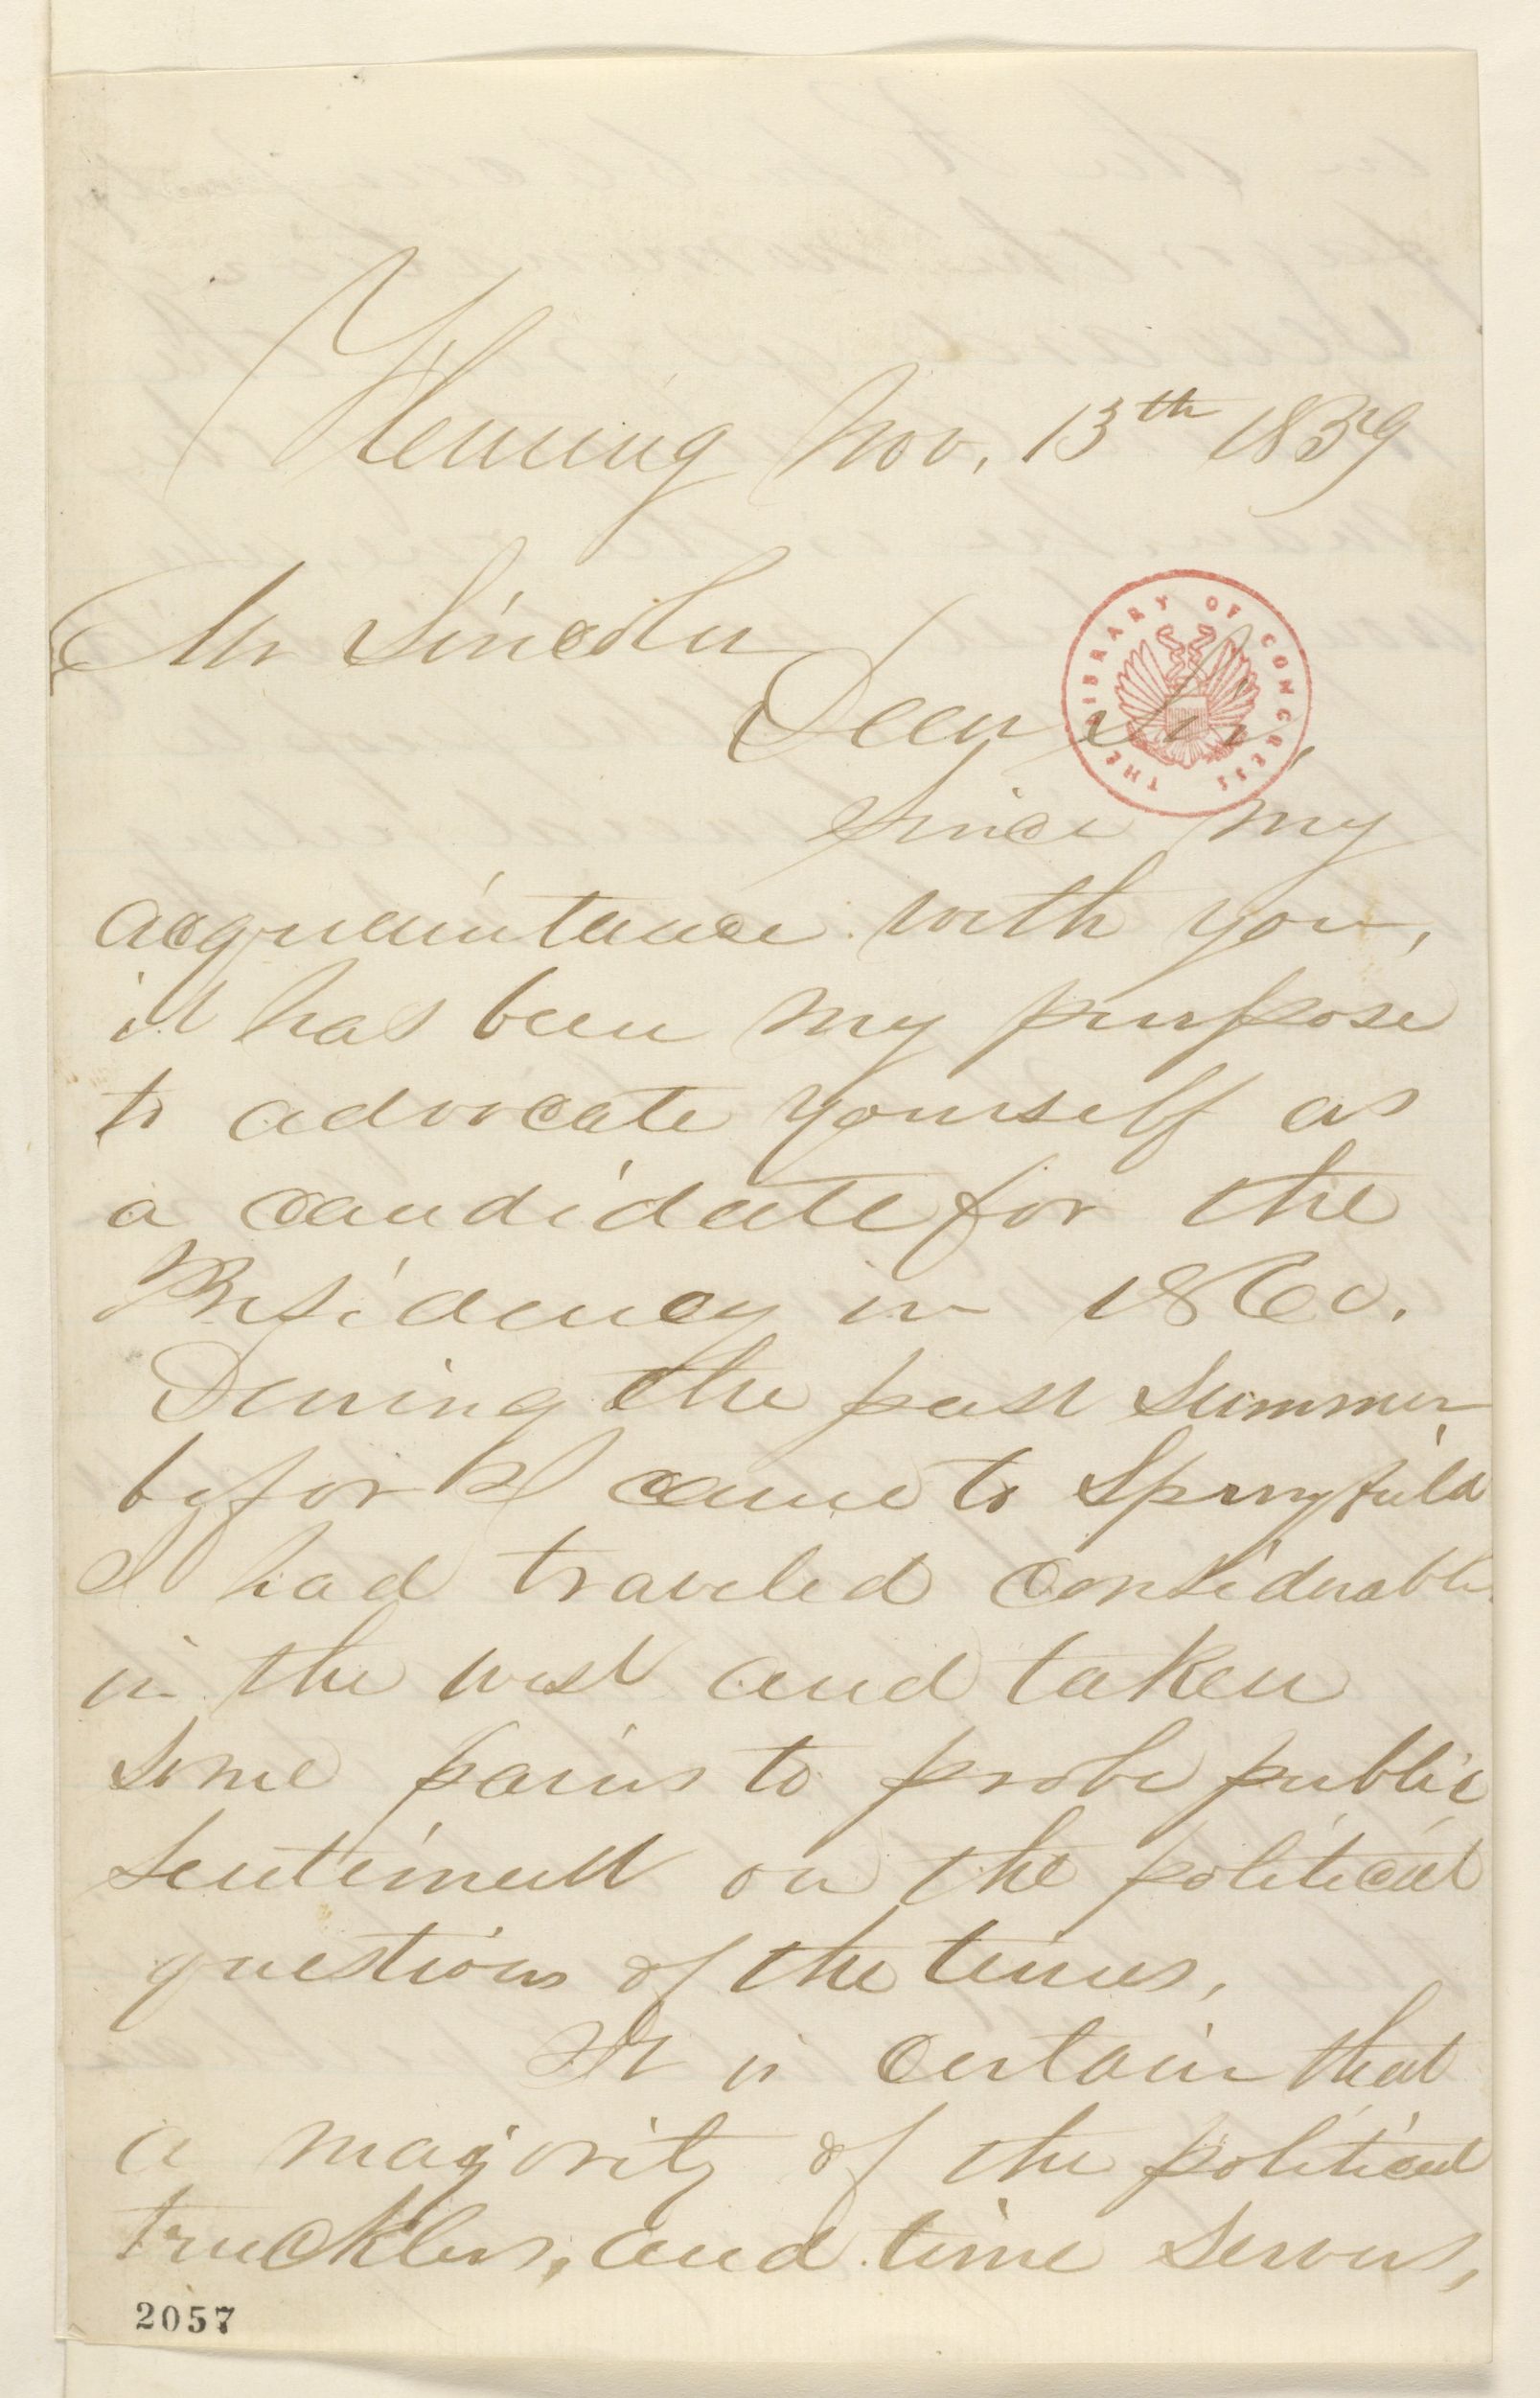 Fleming Nov. 13th 1859
Mr Lincoln
Dear Sir,
Since my
acquaintance with you,
it has been my purpose
to advocate yourself as
a candidate for the
Presidency in 1860.
During the past summer
before I came to Springfield
I had traveled considerable
in the west and taken
some pains to probe public
sentiment on the political
questions of the times.
It is certain that
a majority of the political
trucklers, and time servers,
THE LIBRARY OF CONGRESS
2057